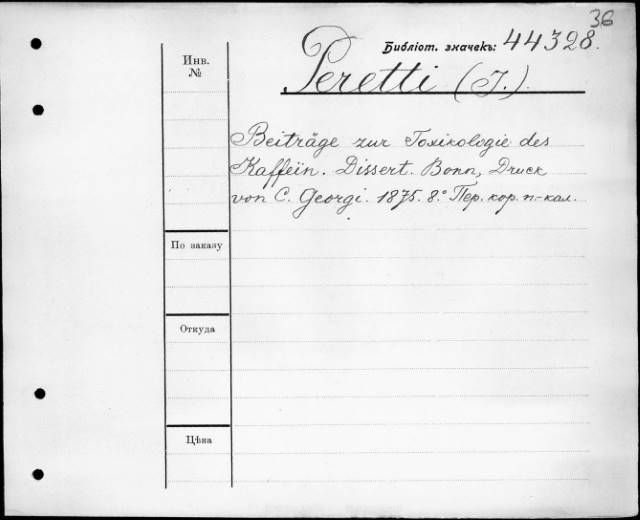 36
Библіот. значекъ: 44328.
Инв.
№
Peretti (J.).
Beiträge zur Toxikologie des
Kaffeïn. Dissert. Bonn, Druck
von C. Georgi. 1875. 8.° Пер. кор. п.-кал.
По заказу
Откуда
Цѣна